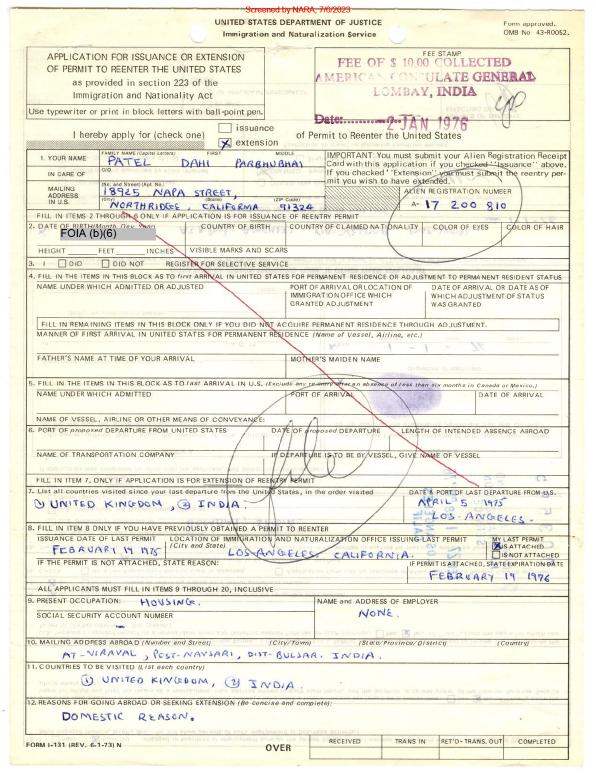 Screened by NARA, 7/6/2023
UNITED STATES DEPARTMENT OF JUSTICE
Immigration and Naturalization Service
Form approved.
OMB No. 43-R0052.
APPLICATION FOR ISSUANCE OR EXTENSION
OF PERMIT TO REENTER THE UNITED STATES
as provided in section 223 of the
Immigration and Nationality Act
Use typewriter or print in block letters with ball-point pen.
FEE STAMP
FEE OF $ 10.00 COLLECTED
AMERICAN CONSULATE GENERAL
BOMBAY, INDIA
Date: 2 JAN 1976
I hereby apply for (check one) issuance
X extension
of Permit to Reenter the United States
1. YOUR NAME FAMILY NAME (Capital Letters) FIRST MIDDLE
PATEL DAHI PARBHUBHAI
IN CARE OF C/O
MAILING ADDRESS IN U.S. (No. and Street) (Apt. No.)
18925 NAPA STREET,
(City) (State) (ZIP Code)
NORTHRIDGE, CALIFORNIA 91324
IMPORTANT: You must submit your Alien Registration Receipt
Card with this application if you checked "Issuance" above.
If you checked "Extension" you must submit the reentry per-
mit you wish to have extended.
ALIEN REGISTRATION NUMBER
A- 17 200 810
FILL IN ITEMS 2 THROUGH 6 ONLY IF APPLICATION IS FOR ISSUANCE OF REENTRY PERMIT
2. DATE OF BIRTH (Month, Day, Year) COUNTRY OF BIRTH COUNTRY OF CLAIMED NATIONALITY COLOR OF EYES COLOR OF HAIR
FOIA (b)(6)
HEIGHT FEET INCHES VISIBLE MARKS AND SCARS
3. I DID DID NOT REGISTER FOR SELECTIVE SERVICE
4. FILL IN THE ITEMS IN THIS BLOCK AS TO first ARRIVAL IN UNITED STATES FOR PERMANENT RESIDENCE OR ADJUSTMENT TO PERMANENT RESIDENT STATUS
NAME UNDER WHICH ADMITTED OR ADJUSTED
PORT OF ARRIVAL OR LOCATION OF IMMIGRATION OFFICE WHICH GRANTED ADJUSTMENT
DATE OF ARRIVAL OR DATE AS OF WHICH ADJUSTMENT OF STATUS WAS GRANTED
FILL IN REMAINING ITEMS IN THIS BLOCK ONLY IF YOU DID NOT ACQUIRE PERMANENT RESIDENCE THROUGH ADJUSTMENT.
MANNER OF FIRST ARRIVAL IN UNITED STATES FOR PERMANENT RESIDENCE (Name of Vessel, Airline, etc.)
FATHER'S NAME AT TIME OF YOUR ARRIVAL MOTHER'S MAIDEN NAME
5. FILL IN THE ITEMS IN THIS BLOCK AS TO last ARRIVAL IN U.S. (Exclude any re-entry after an absence of less than six months in Canada or Mexico.)
NAME UNDER WHICH ADMITTED PORT OF ARRIVAL DATE OF ARRIVAL
NAME OF VESSEL, AIRLINE OR OTHER MEANS OF CONVEYANCE:
6. PORT OF proposed DEPARTURE FROM UNITED STATES DATE OF proposed DEPARTURE LENGTH OF INTENDED ABSENCE ABROAD
NAME OF TRANSPORTATION COMPANY IF DEPARTURE IS TO BE BY VESSEL, GIVE NAME OF VESSEL
file
FILL IN ITEM 7, ONLY IF APPLICATION IS FOR EXTENSION OF REENTRY PERMIT
7. List all countries visited since your last departure from the United States, in the order visited
① UNITED KINGDOM, ② INDIA.
DATE & PORT OF LAST DEPARTURE FROM U.S.
APRIL 5 1975
LOS-ANGELES.
8. FILL IN ITEM 8 ONLY IF YOU HAVE PREVIOUSLY OBTAINED A PERMIT TO REENTER
ISSUANCE DATE OF LAST PERMIT
FEBRUARY 19 1975
LOCATION OF IMMIGRATION AND NATURALIZATION OFFICE ISSUING LAST PERMIT
(City and State)
LOS-ANGELES. CALIFORNIA.
MY LAST PERMIT
X IS ATTACHED
IS NOT ATTACHED
IF THE PERMIT IS NOT ATTACHED, STATE REASON:
IF PERMIT IS ATTACHED, STATE EXPIRATION DATE
FEBRUARY 19 1976
ALL APPLICANTS MUST FILL IN ITEMS 9 THROUGH 20, INCLUSIVE
9. PRESENT OCCUPATION: HOUSING.
NAME and ADDRESS OF EMPLOYER
NONE.
SOCIAL SECURITY ACCOUNT NUMBER
-
10. MAILING ADDRESS ABROAD (Number and Street) (City/Town) (State/Province/District) (Country)
AT-VIRAVAL, POST-NAVSARI, DIST-BULSAR. INDIA.
11. COUNTRIES TO BE VISITED (List each country)
① UNITED KINGDOM, ② INDIA.
12. REASONS FOR GOING ABROAD OR SEEKING EXTENSION (Be concise and complete)
DOMESTIC REASON.
FORM I-131 (REV. 6-1-73) N
OVER
RECEIVED TRANS IN RET'D-TRANS. OUT COMPLETED